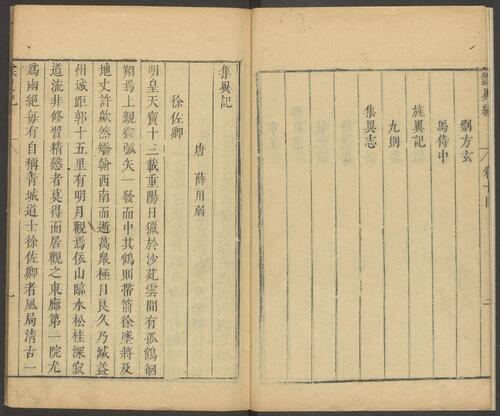 劉方玄
馬侍中
旌異記
九則
集異志
集異記
唐 薛用弱
徐佐卿
明皇天寶十三載重陽日獵於沙苑雲間有孤鶴徊
翔焉上親御弧矢一發而中其鶴則帶箭徐墜將及
地丈許歘然矯翰西南而逝萬衆極目良久乃滅益
州城距郭十五里有明月觀焉依山臨水松桂深寂
道流非修習精慤者莫得而居觀之東廊第一院尤
爲幽絕每有自稱青城道士徐佐卿者風局清古一